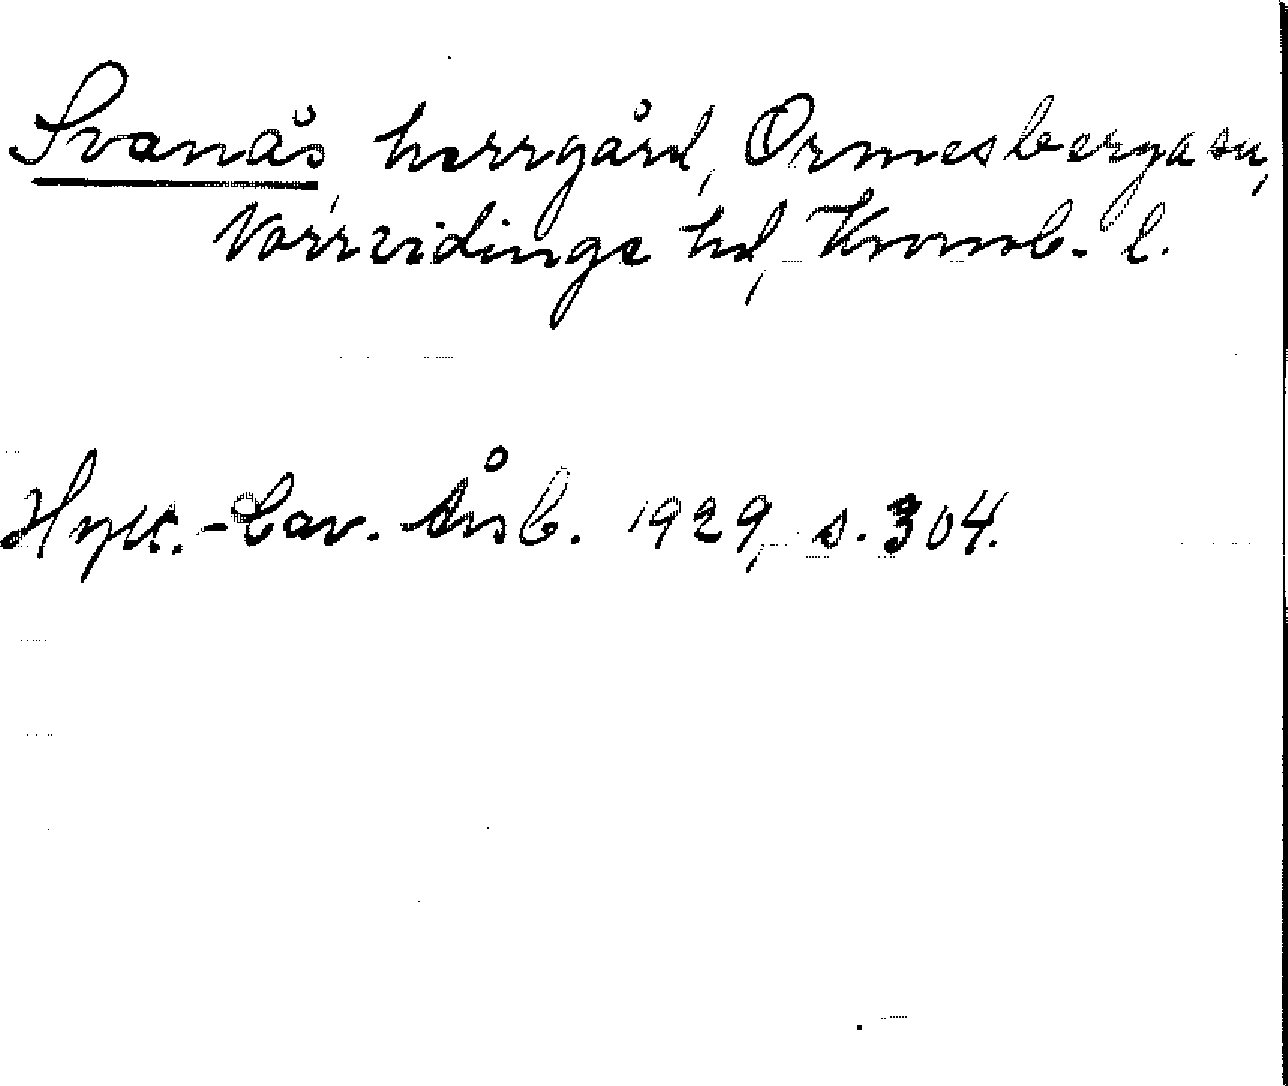 Svanås herrgård, Ormesberga sn,
Norrvidinge hd, Kronob. l.
Hylt.-Cav. Årsb. 1929, s. 304.